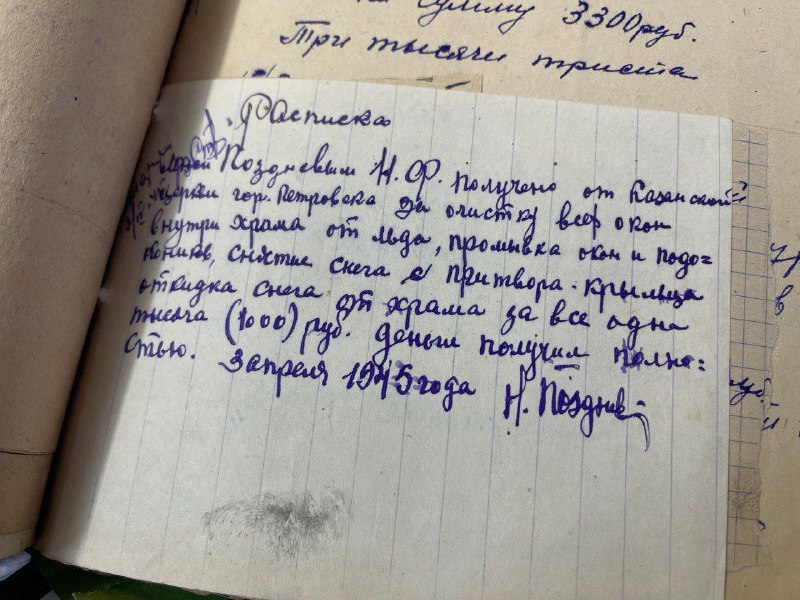 сумму 3300руб.
Три тысячи триста
Расписка
мной Поздневым Н. Ф. получено от Казанской
церкви гор. Петровска за очистку всех окон
внутри храма от льда, промывка окон и подо=
конников, снятие снега с притвора-крыльца
откидка снега от храма за все одна
тысяча (1000) руб. деньги получил полно=
стью. 3 апреля 1945 года Н. Позднев